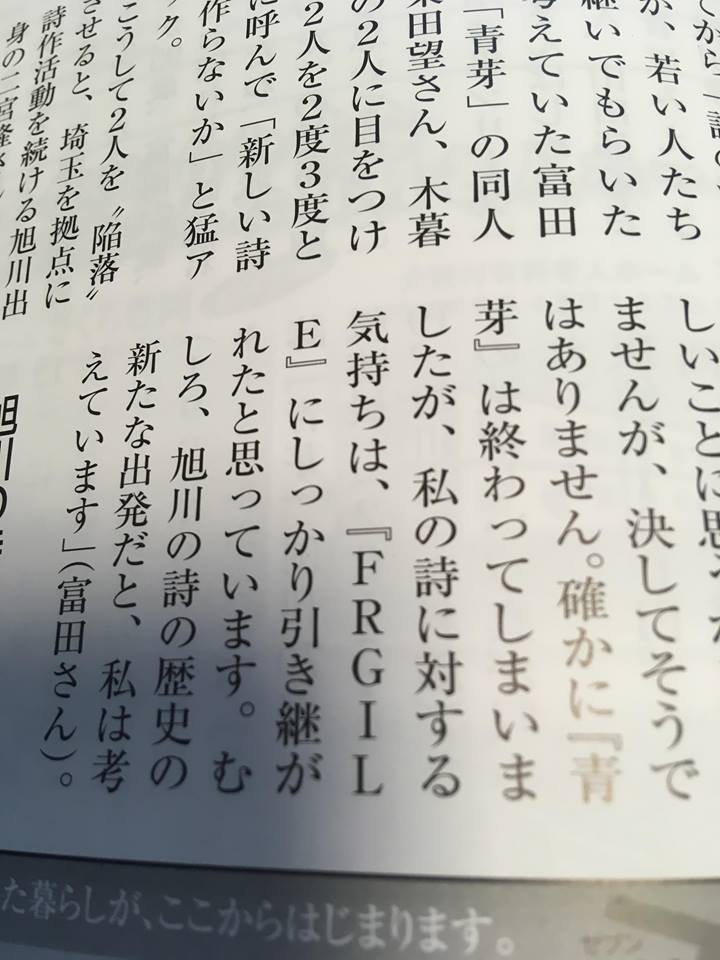 から「詩の
が、若い人たち
継いでもらいた
考えていた富田
「青芽」の同人
柴田望さん、木暮
の2人に目をつけ
2人を2度3度と
に呼んで「新しい詩
作らないか」と猛ア
ック。
こうして2人を〝陥落〟
させると、埼玉を拠点に
詩作活動を続ける旭川出
身の二宮隆さ
しいことに思
ませんが、決してそうで
はありません。確かに『青
芽』は終わってしまいま
したが、私の詩に対する
気持ちは、『FRGIL
E』にしっかり引き継が
れたと思っています。む
しろ、旭川の詩の歴史の
新たな出発だと、私は考
えています」(富田さん)。
旭川の
た暮らしが、ここからはじまります。
セブン